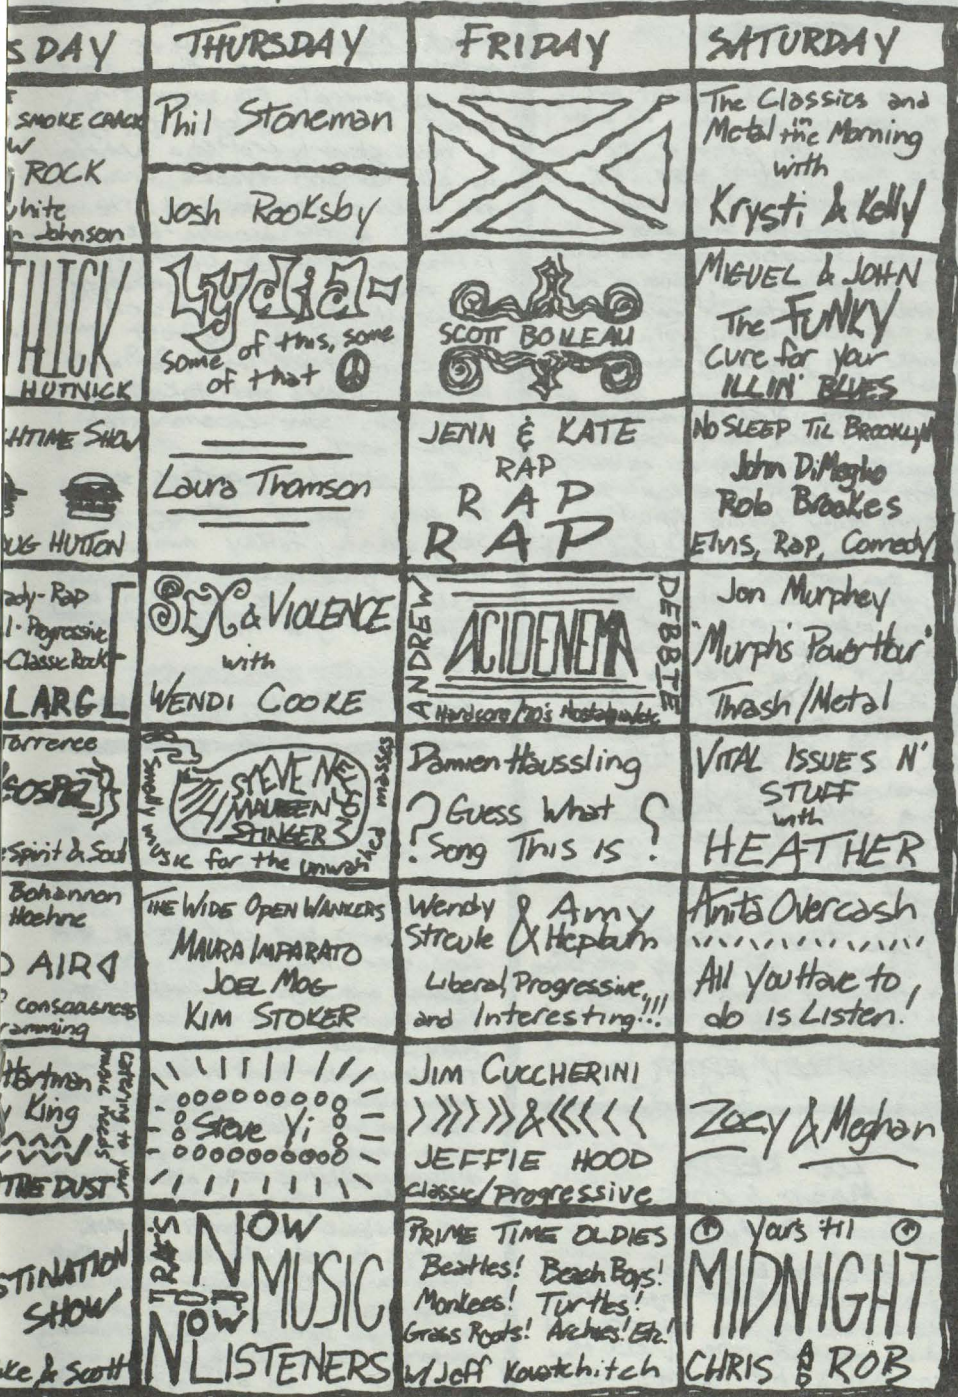 SDAY
THURSDAY
FRIDAY
SATURDAY
SMOKE CRACK
ROCK
white
Johnson
Phil Stoneman
Josh Rooksby
The Classics and
Metal in the Morning
with
Krysti & Kelly
THICK
HUTNICK
Lydia-
some of this, some
of that
SCOTT BOILEAU
MIGUEL & JOHN
The FUNKY
Cure for your
ILLIN' BLUES
HTIME SHOW
UG HUTTON
Laura Thomson
JENN & KATE
RAP
RAP
RAP
NO SLEEP TIL BROOKLYN
John DiMeglio
Rob Brookes
Elvis, Rap, Comedy
ady-Rap
l-Progressive
-Classic Rock
LARG
SEX & VIOLENCE
with
WENDI COOKE
ANDREW
ACIDENEMA
DEBBTE
Hardcore/70's
Jon Murphey
"Murph's Power Hour"
Thrash/Metal
Torrence
GOSPEL
Spirit & Soul
STEVE NELSON
MAUREEN
STINGER
Smelly music for the unwashed masses
Damien Haussling
? Guess What ?
! Song This Is !
VITAL ISSUES N'
STUFF
with
HEATHER
Bohannon
Hoehne
AIR
consciousness
ramming
THE WIDE OPEN WANKERS
MAURA IMPARATO
JOEL MOG
KIM STOKER
Wendy & Amy
Streule Hepburn
Liberal, Progressive,
and Interesting!!!
Anita Overcash
All You Have to
do Is Listen!
Hartman
King
Catering to your
music needs
THE DUST
Steve Yi
JIM CUCCHERINI
&
JEFFIE HOOD
Classic/Progressive
Zoey & Meghan
STINATION
SHOW
ke & Scott
NOW
MUSIC
FOR
NOW
LISTENERS
PRIME TIME OLDIES
Beatles! Beach Boys!
Monkees! Turtles!
Grass Roots! Archies! Etc!
w/Jeff Kovatchitch
Yours 'til
MIDNIGHT
CHRIS AND ROB